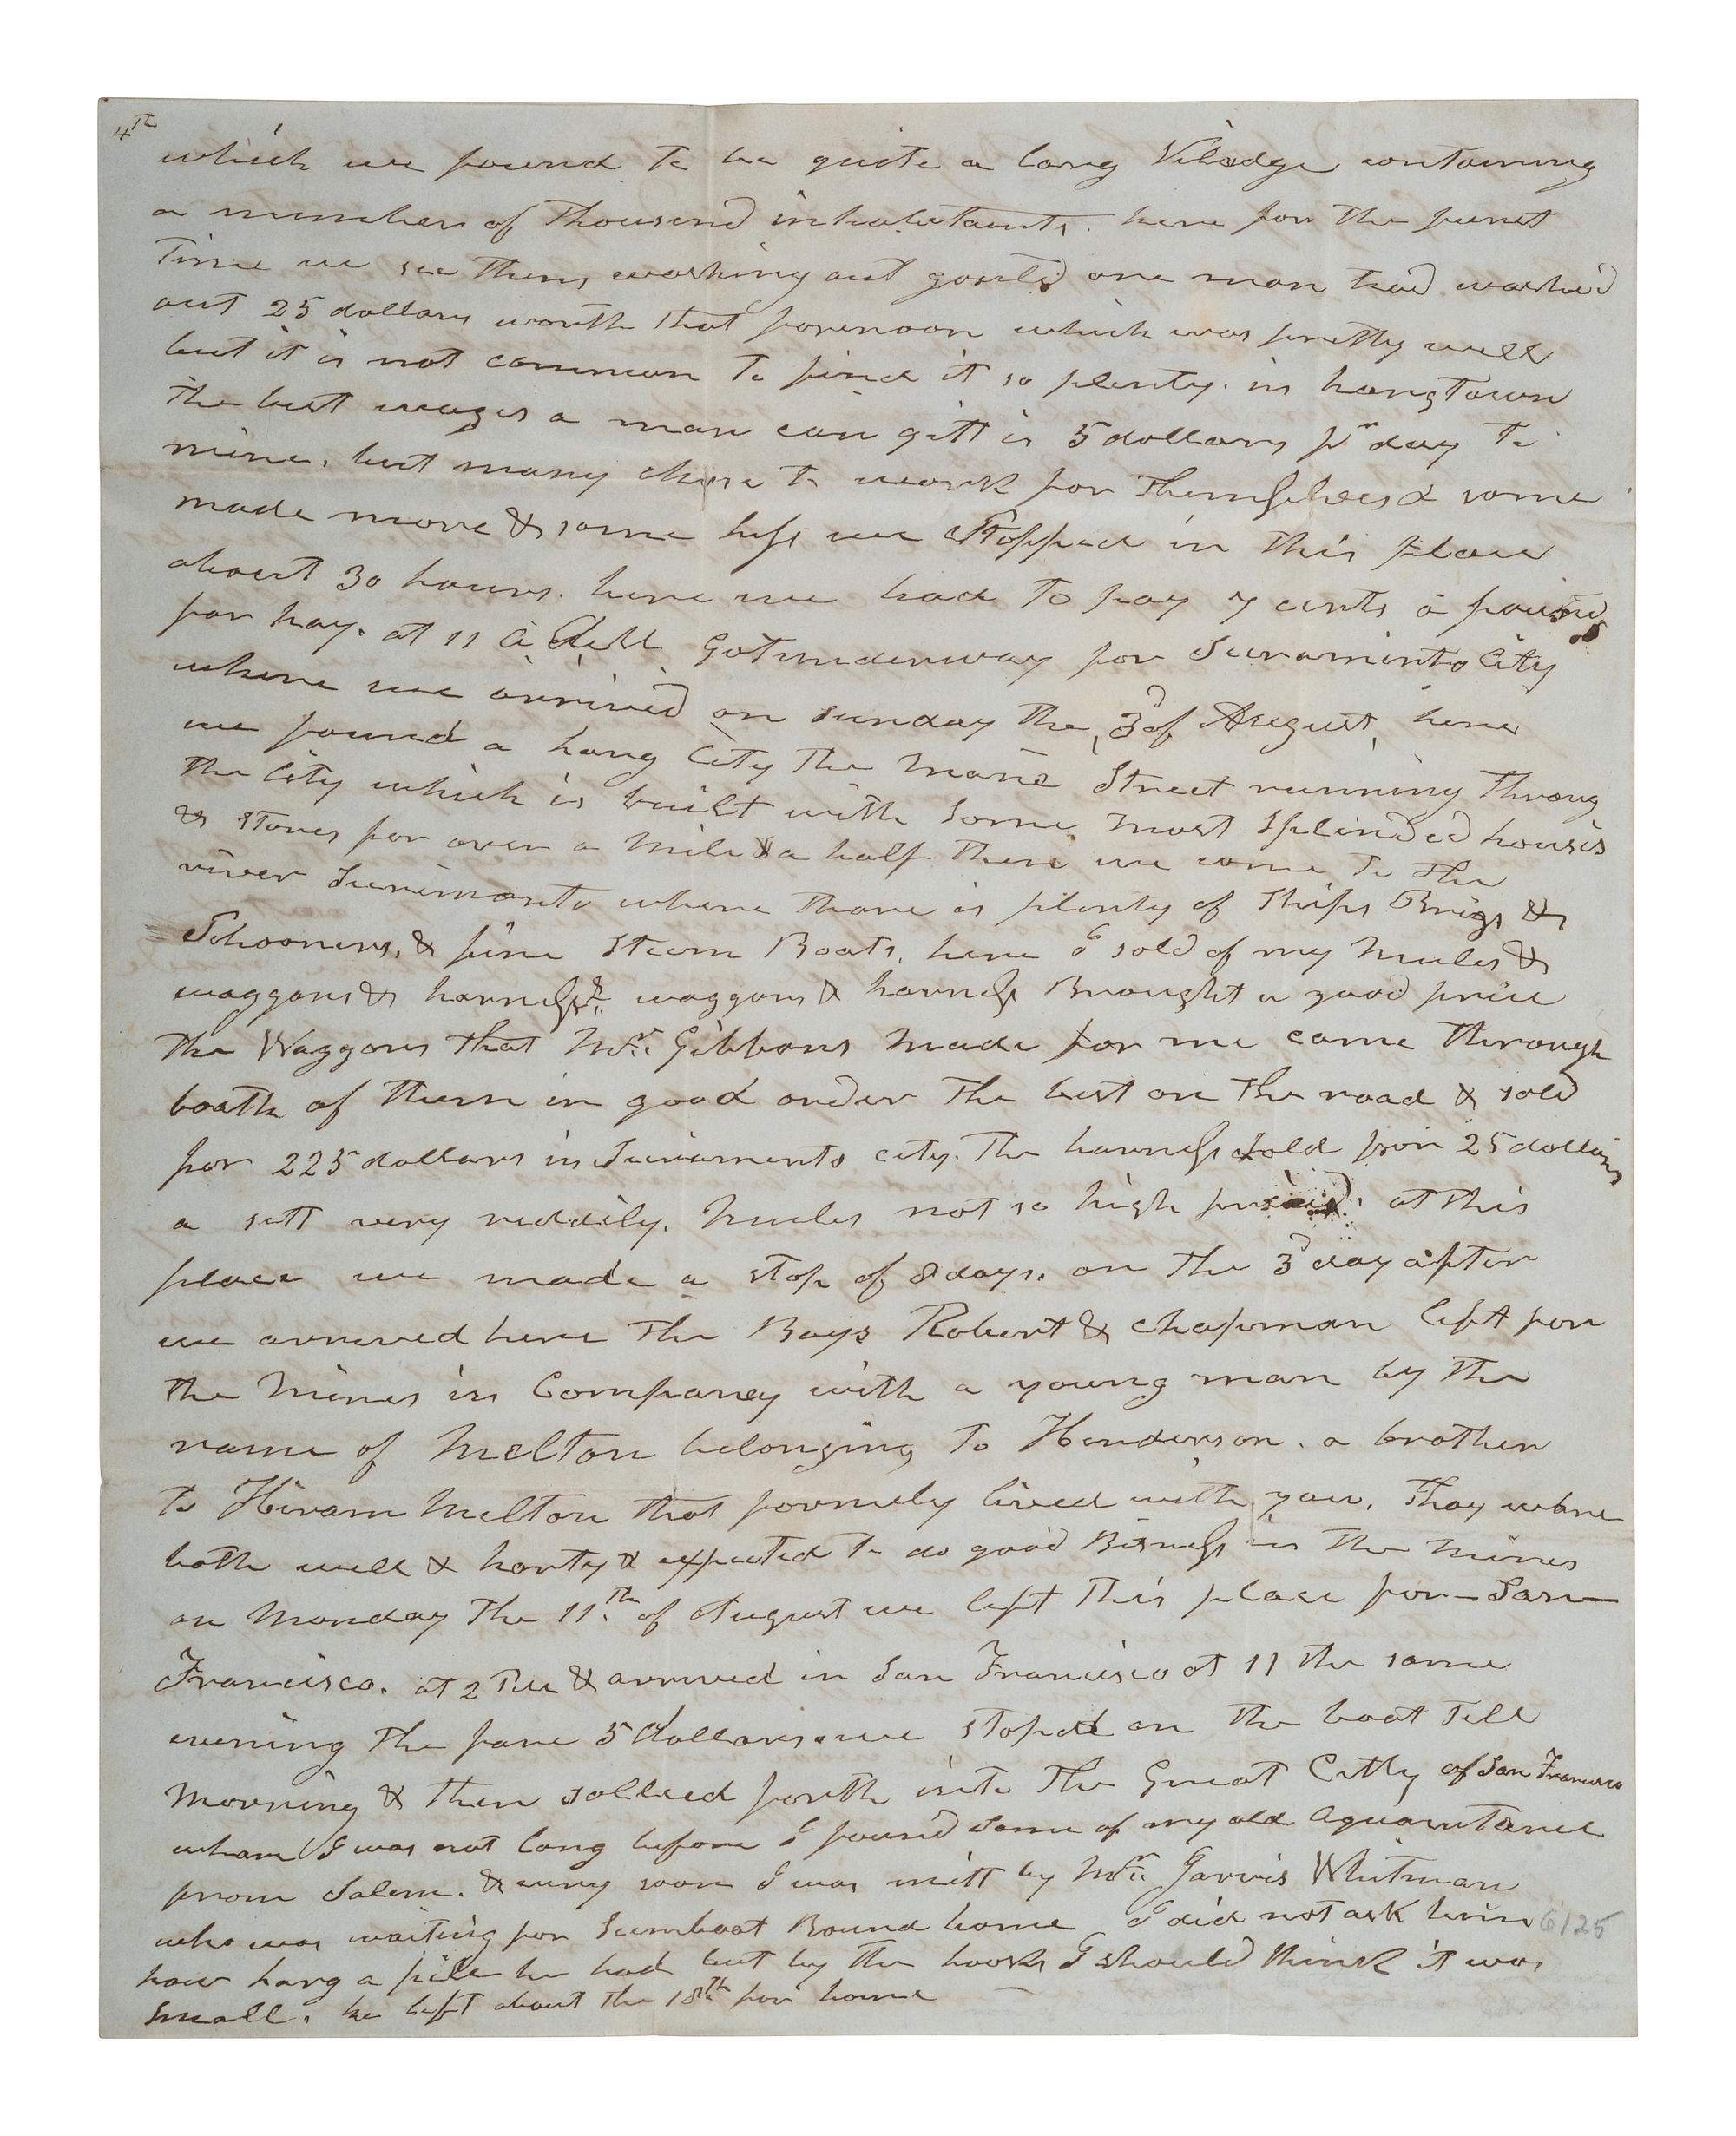 4th
which we found to be quite a larg Viladge containing
a number of thousend inhabetants. here for the furst
time we see them washing out gould one man had washed
out 25 dollars worth that forenoon which was pretty well
but it is not common to find it so plenty. in hangtown
the best wages a man can gitt is 5 dollars pr day to
mine. but many chose to work for themselves & some
made more & some less we stopped in this place
about 30 hours. here we had to pay 7 cents a pound
for hay. at 11 A Gotunderway for Sacramento City
where we arrived on sunday the 3d of August, here
we found a larg City the mane Street running throug
the City which is built with some most Splended houses
& stores for over a mile & a half then we come to the
river Sacrimento where thare is plenty of Ships Brigs &
Schooners, & fine Steem Boats, here I sold of my mules &
waggons & harness. waggons & harness Brought a good price
the Waggons that Mr. Gibbons made for me came through
boath of them in good order the best on the road & sold
for 225 dollars in Sacramento city. the harness sold for 25 dollars
a sett very reddily. mules not so high at this
place we made a stop of 8 days. on the 3d day after
we arrived here the Boys Robert & chapman left for
the mines in Company with a young man by the
name of Melton belonging to Henderson. a brother
to Hiram Melton that formely lived with you. thay where
both well & harty & expected to do good Bisness in the mines
on monday the 11th of August we left this place for San
Francisco. at 2 PM & arrived in San Francisco at 11 the same
evening the fare 5 dollars. we stoped on the boat till
morning & then sallied forth into the Great Citty of San Francisco
whare I was not long before I found some of my old aquaintance
from Salem. & very soon I was mitt by Mr. Jarvis Whitman
who was waiting for Steemboat Bound home I did not ask him 6125
how larg a pile he had but by the looks I should think it was
small. he left about the 18th for home